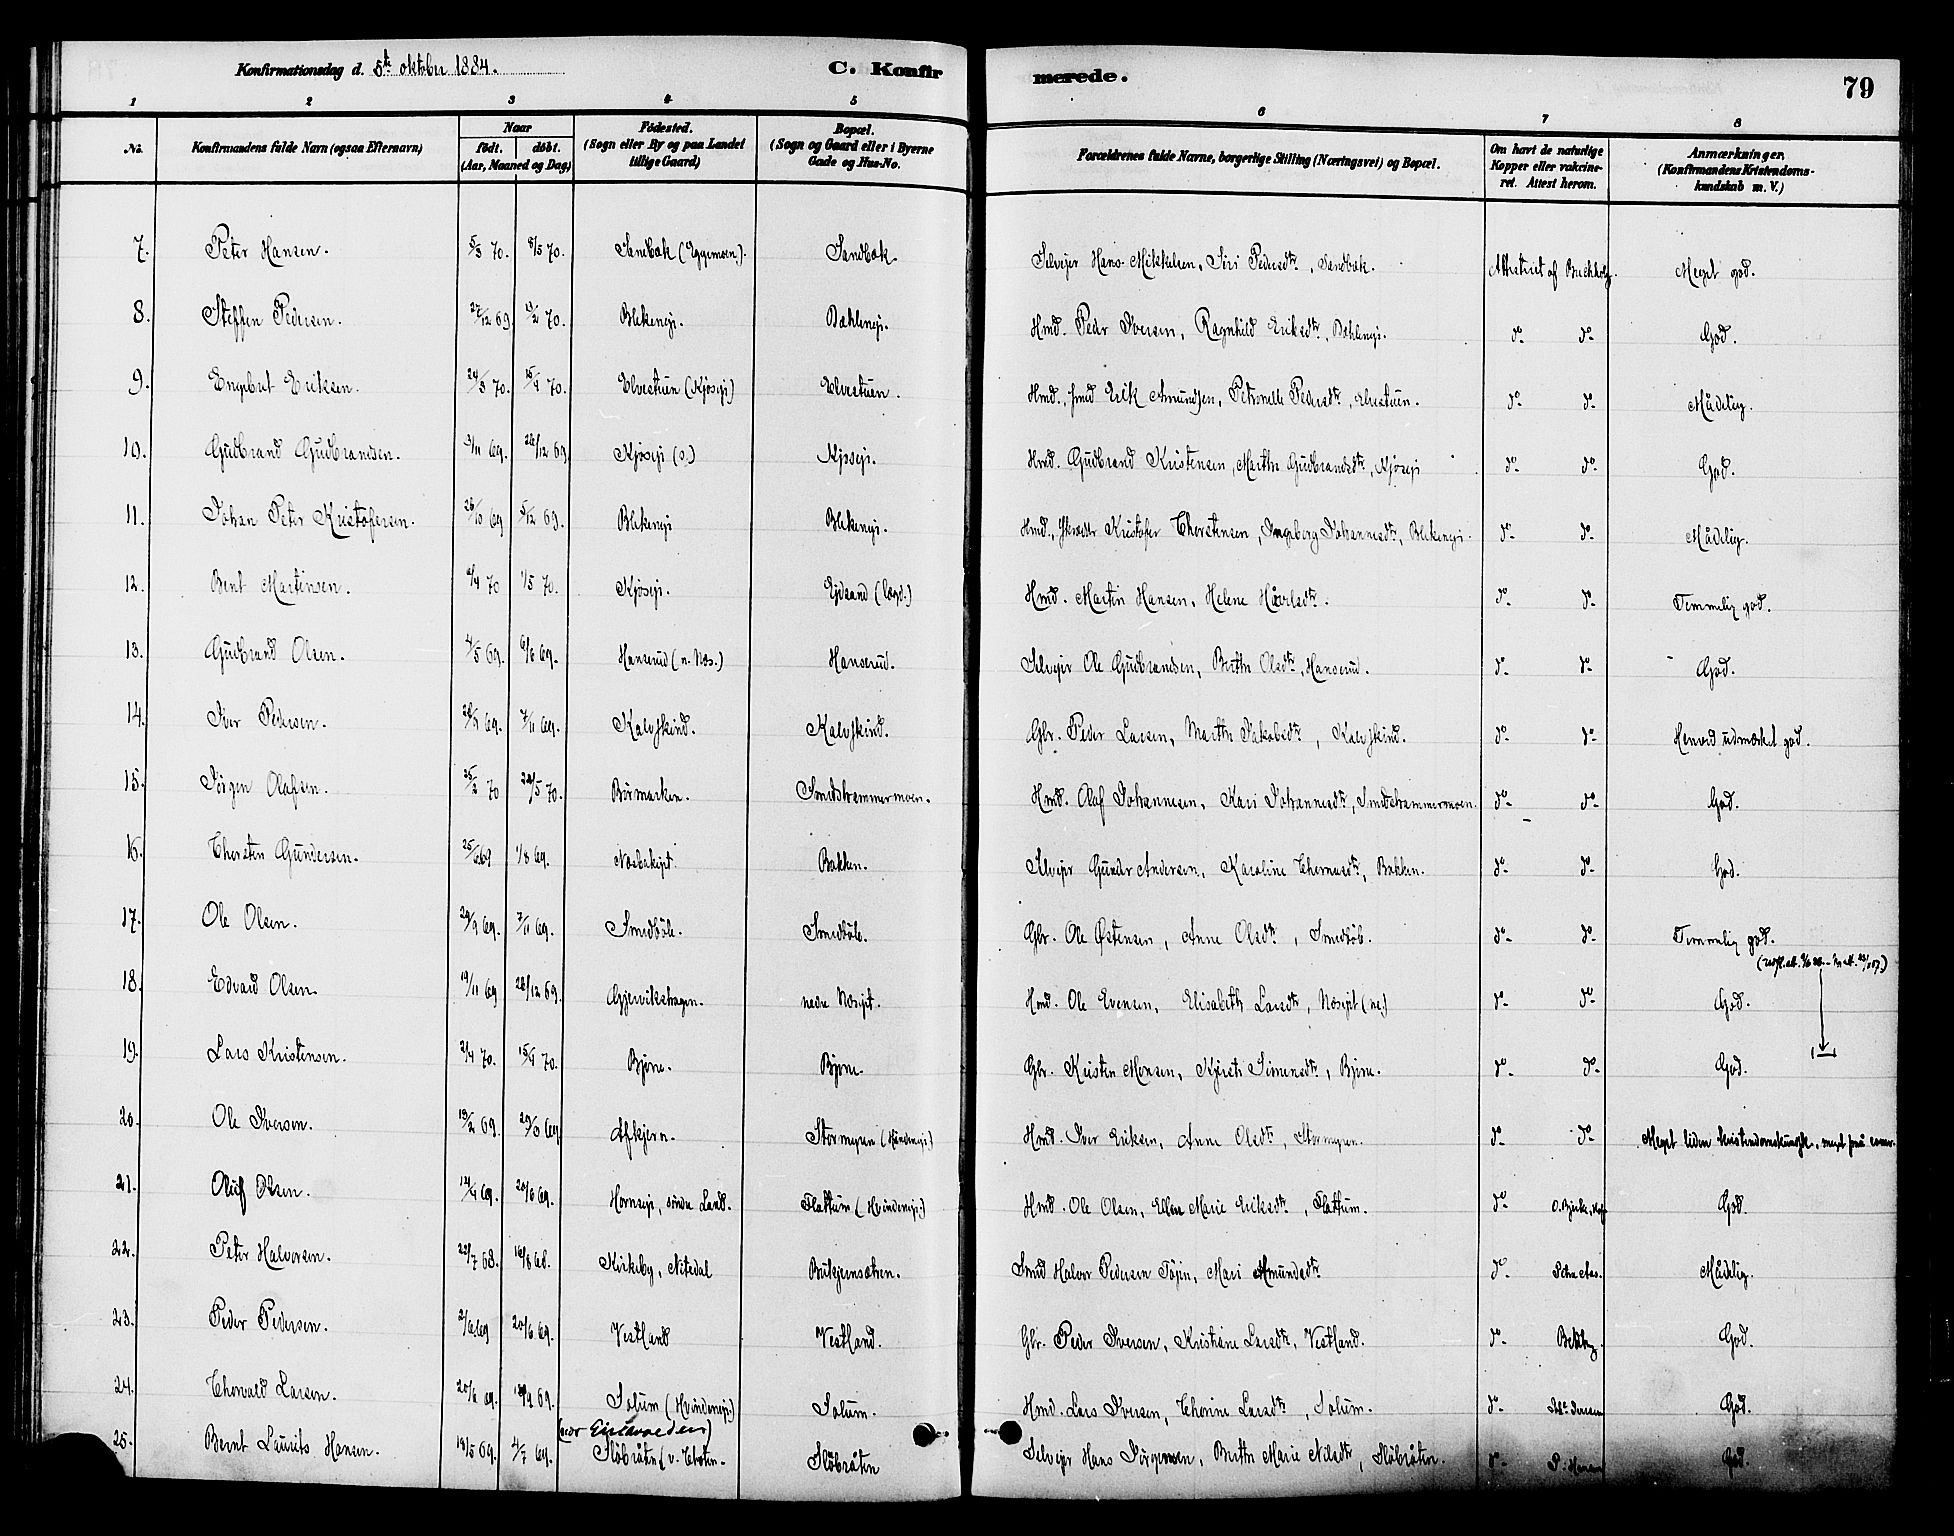 Konfirmationsdag d. 5te oktober 1884. C. Konfirmerede. 79
1 2 3 4 5 6 7 8
No. Konfirmandens fulde Navn (ogsaa Efternavn) Naar født. døbt. (Aar, Maaned og Dag) Fødested. (Sogn eller By og paa Landet tillige Gaard) Bopæl. (Sogn og Gaard eller i Byerne Gade og Hus-No. Forældrenes fulde Navne, borgerlige Stilling (Næringsvei) og Bopæl. Om havt de naturlige Kopper eller vakcineret. Attest herom. Anmærkninger. (Konfirmandens Kristendomskundskab m. V.)
7. Peter Hansen. 5/3 70. 8/5 70. Sandbæk (Eggemoen). Sandbæk. Selvejer Hans Mikkelsen, Siri Pedersdtr, Sandbæk. Attesteret af Buchholz. Meget god.
8. Steffen Pedersen. 27/12 69. 13/2 70. Blekenejt. Dæhlenejt. Hmd. Peder Iversen, Ragnhild Eriksdtr, Dæhlenejt. do do God.
9. Engebret Eriksen. 24/3 70. 15/4 70. Elvestuen (Kjøsejt) Elvestuen. Hmd., smed Erik Amundsen, Petronelle Pedersdtr, Elvestuen. do do Mådelig.
10. Gudbrand Gudbrandsen. 9/11 69. 26/12 69. Kjøsejt (ø.) Kjøsejt. Hmd. Gudbrand Kristensen, Marthe Gudbrandsdtr, Kjøsejt do do God.
11. Johan Peter Kristofersen. 26/10 69 5/12 69. Blekenejt Blekenejt. Hmd., skræder Kristofer Thorstensen, Ingeborg Johannesdtr, Blekenejt. do do Mådelig.
12. Bent Martinsen. 2/4 70 1/5 70. Kjøsejt. Ejdsand (lægd.) Hmd. Martin Hansen, Helene Hårlsdtr. do do Temmelig god.
13. Gudbrand Olsen. 4/5 69. 6/6 69. Hanserud (n. Næs.) Hanserud. Selvejer Ole Gudbrandsen, Berthe Olsdtr, Hanserud. do do God.
14. Iver Pedersen. 28/9 69. 7/11 69. Kalvskind. Kalvskind. Gbr. Peder Larsen, Marthe Jakobsdtr, Kalvskind. do do Henved udmærket god.
15. Jørgen Olafsen. 25/2 70 22/5 70. Børmarken. Smedshammermoen. Hmd. Olaf Johannesen, Kari Johannesdtr, Smedshammermoen. do do God.
16. Thorsten Gundersen. 25/6 69 1/8 69. Næsbakejt. Bakken. Selvejer Gunder Andersen, Karoline Thomasdtr, Bakken. do do God.
17. Ole Olsen. 29/9 69. 7/11 69. Smedbøle. Smedbøle. Gbr. Ole Østensen, Anne Olsdtr, Smedbøl. do do Temmelig god.
18. Edvard Olsen. 19/11 69 26/12 69. GjerviksHagen. nedre Næsejet. Hmd. Ole Evensen, Elisabeth Larsdtr, Næsejet (ne.) do do God.
19. Lars Kristensen. 2/4 70. 15/4 70. Bjone. Bjone. Gbr. Kristen Monsen, Kjersti Simensdtr, Bjone. do do God.
20. Ole Iversen. 13/2 69. 20/6 69 Afkjern. Stormyren (Hvindenejt.) Hmd. Iver Eriksen, Anne Olsdtr, Stormyren. do do Meget liden kristendomskundsk.
21. Oluf Olsen. 12/4 69. 20/6 69. Hornsejt, søndre Land. Flattum (Hvindenejt.) Hmd. Ole Olsen, Ellen Marie Eriksdtr, Flattum. do God.
22. Peter Halvorsen. 22/7 68. 16/8 68. Kirkeby, Nitedal Bukjernsætren. Smed Halvor Pedersen Tøjen, Mari Amundsdtr do Mådelig.
23. Peder Pedersen. 2/6 69 20/6 69. Vestland Vestland. Gbr. Peder Iversen, Kristiane Larsdtr, Vestland. do God.
24. Thorvald Larsen. 20/6 69. Solum (Hvindenejt.) Solum. Hmd. Lars Iversen, Thorine Larsdtr, Solum. do God.
25. Bernt Laurits Hansen. 18/5 69. 4/7 69. Sløbråten (v. Thoten. Sløbråten Selvejer Hans Jørgensen, Berthe Marie Nilsdtr, Sløbråten. do P. Hansen God.